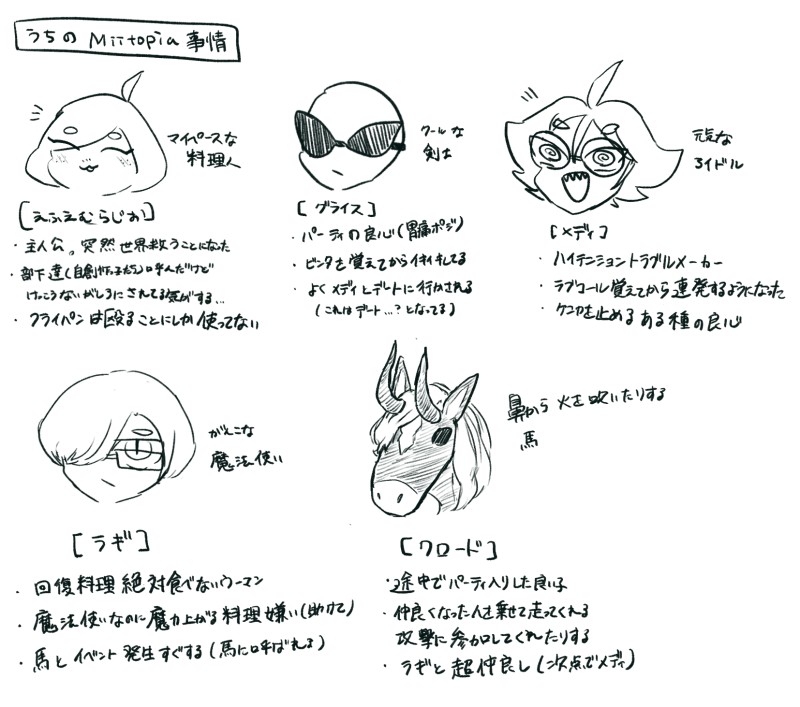 うちの Miitopia 事情
マイペースな
料理人
[えふえむらじお]
・主人公。突然世界救うことになった
・部下達(自創作っ子たち)呼んだけど
けっこうないがしろにされてる気がする…
・フライパンは殴ることにしか使ってない
クールな
剣士
[グライス]
・パーティの良心(胃痛ポジ)
・ビンタを覚えてからイキイキしてる
・よくメディとデートに行かされる
(これはデート…?となってる)
元気な
アイドル
[メディ]
・ハイテンショントラブルメーカー
・ラブコール覚えてから連発するようになった
・ケンカを止めるある種の良心
がんこな
魔法使い
[ラギ]
・回復料理絶対食べないウーマン
・魔法使いなのに魔力上がる料理嫌い(助けて)
・馬とイベント発生すぐする(馬に呼ばれる)
鼻から火を吹いたりする
馬
[クロード]
・途中でパーティ入りした良い子
・仲良くなった人を乗せて走ってくれる
攻撃に参加してくれたりする
・ラギと超仲良し(次点でメディ)